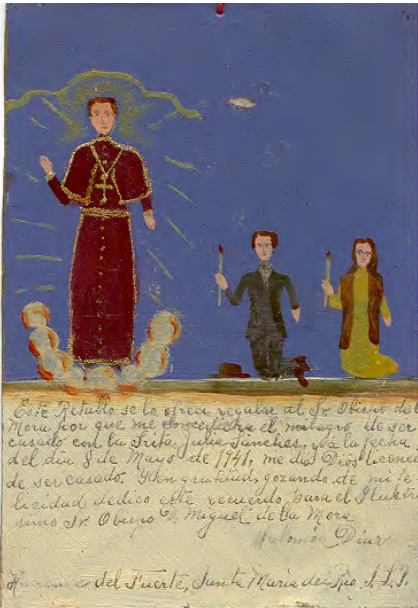 Este Retablo se le ofrecí regalar al Sr. Obispo de la
Mora por que me concediera el milagro de ser
casado con la Srita Julia Sánches, y a la fecha
del día 8 de Mayo de 1941, me dió Dios licencia
de ser casado. Y en gratitud, gozando de mi fe
licidad, dedico este recuerdo para el Ilustri
simo Sr. Obispo D. Miguel de la Mora.
Salomón Díaz
del Fuerte, Santa María del Río, S.L.P.